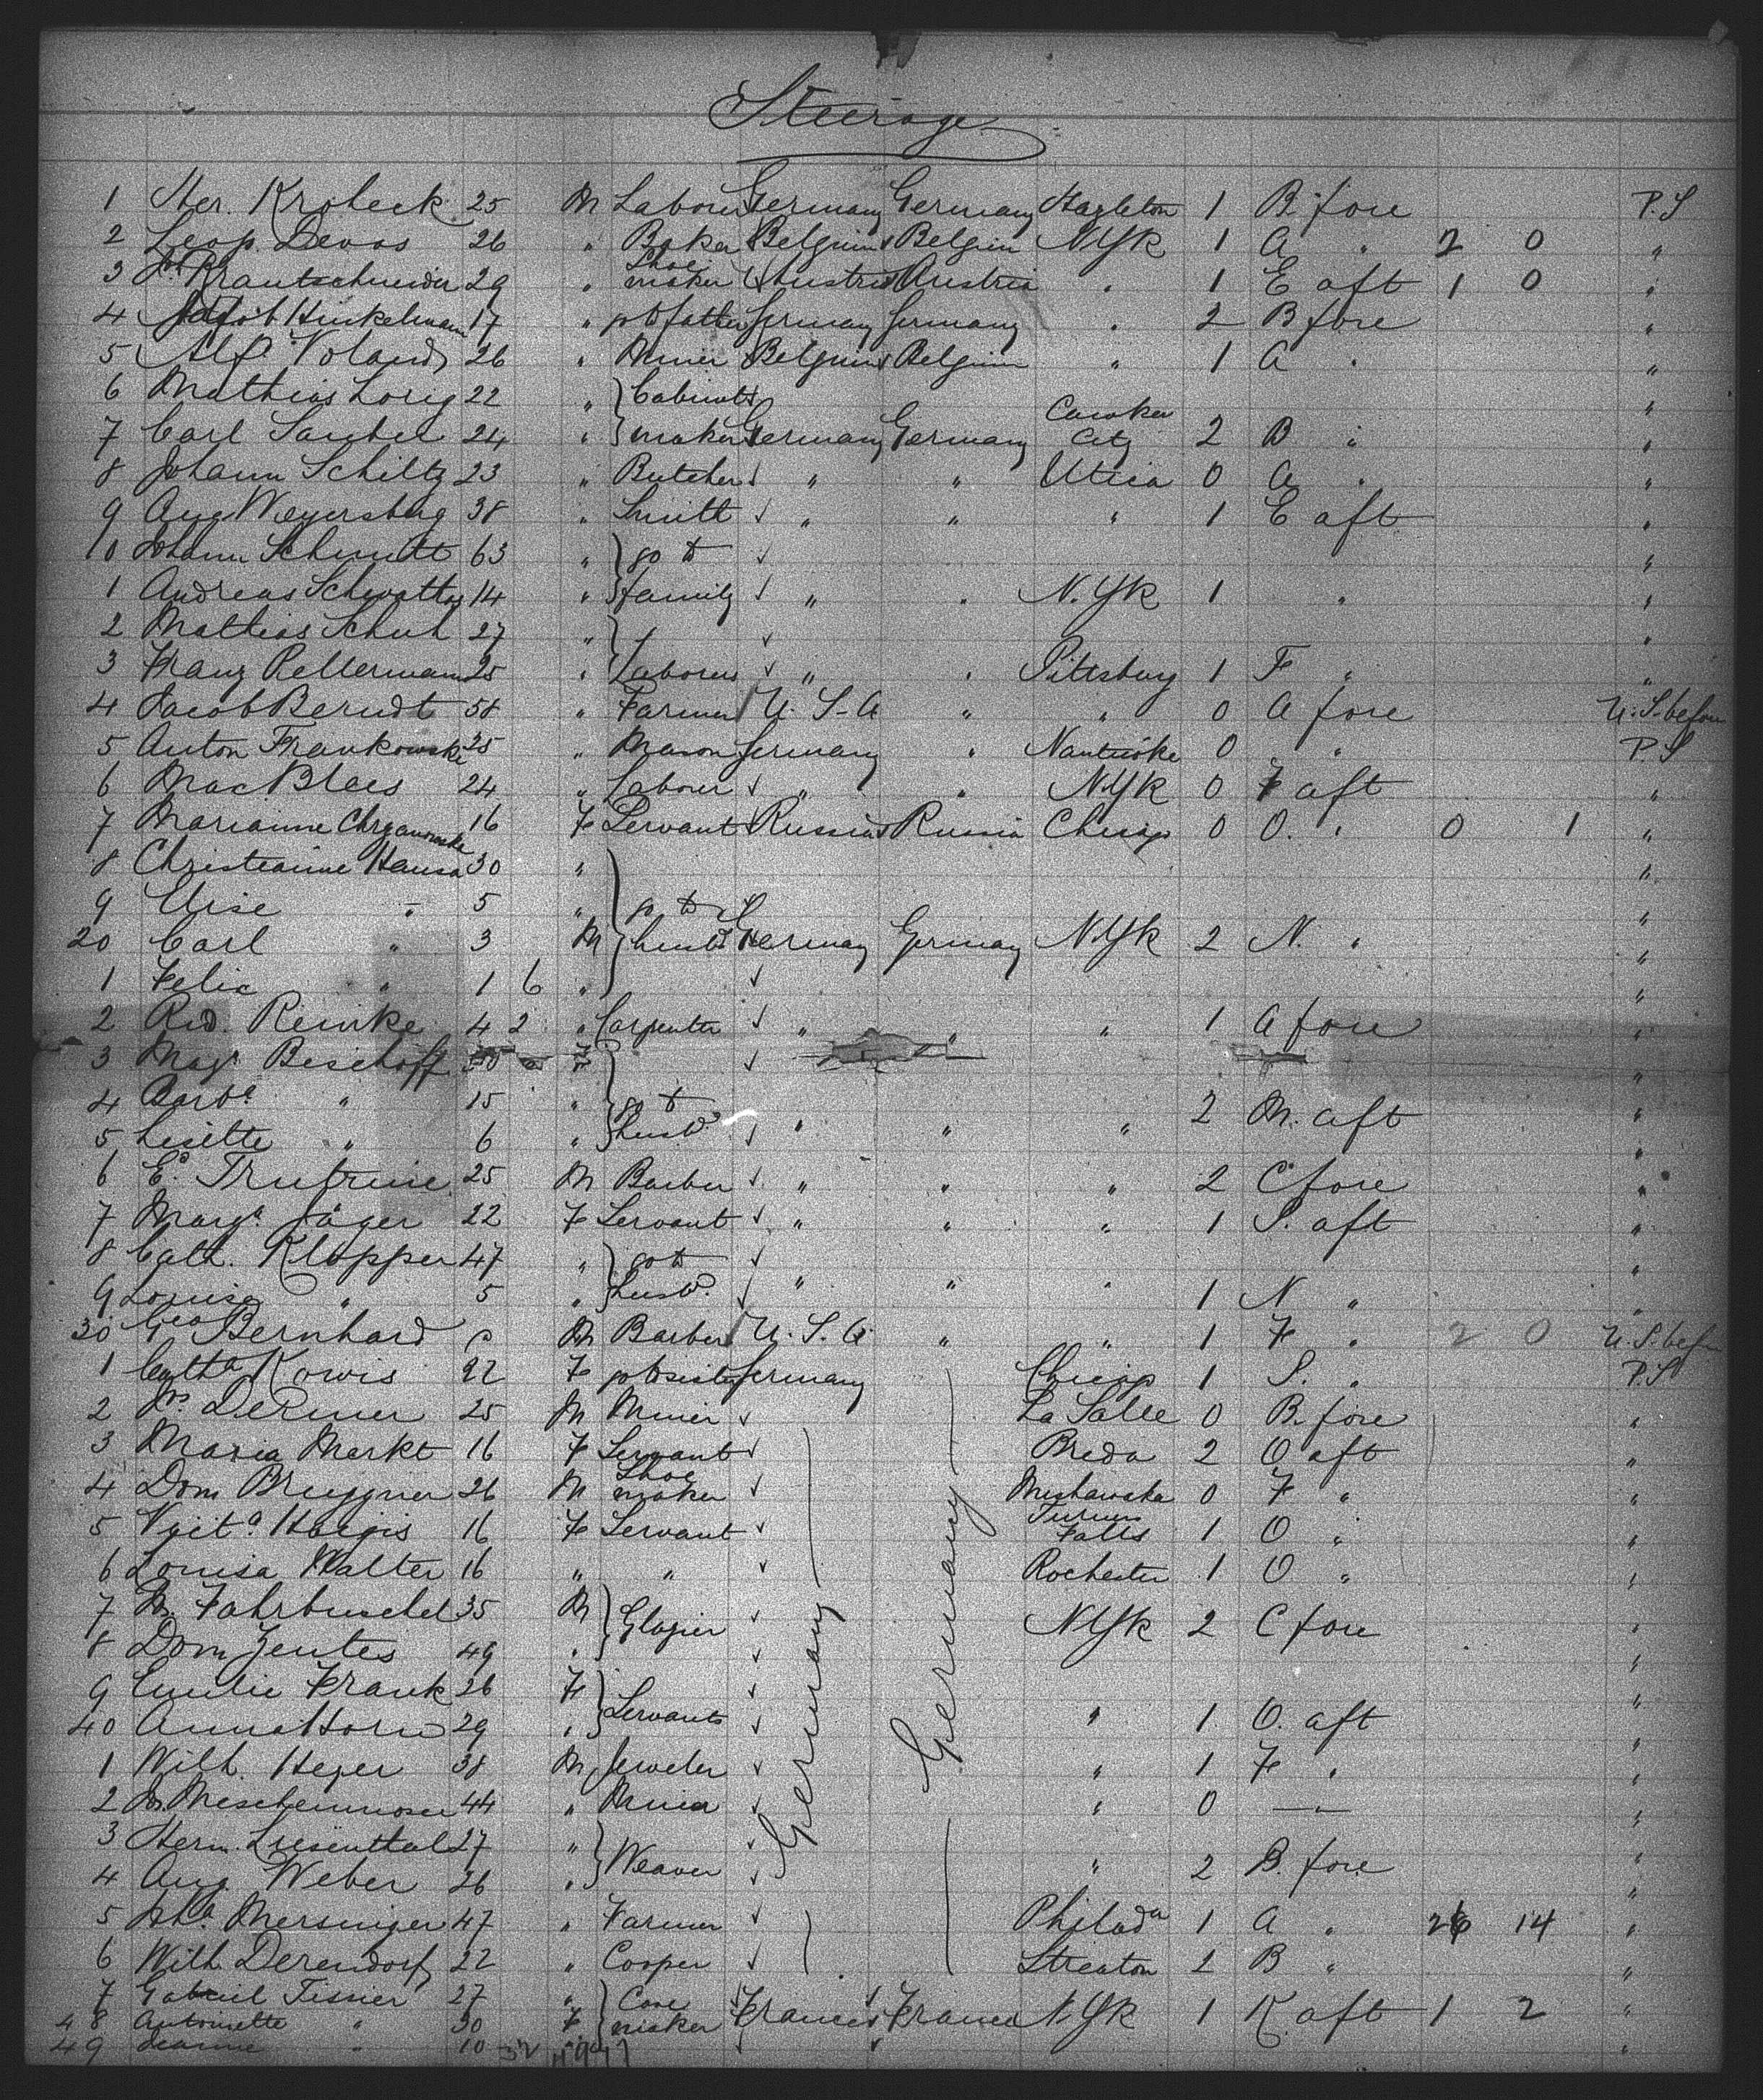 Steerage
1 Her. Krobeck 25 M Laborer Germany Germany Hazleton 1 B. fore P.S
2 Leop. Devos 26 " Baker Belgium Belgium N Yk 1 A " 2 0 "
3 Krautschneider 29 " Shoe maker Austria Austria " 1 E aft 1 0 "
4 Jakob Hinkelmann 17 " go to father Germany Germany " 2 B fore "
5 Alf. Voland 26 " Miner Belgium Belgium " 1 A " "
6 Mathias Lorig 22 " Cabinet "
7 Carl Sauber 24 " maker Germany Germany Cawker City 2 B " "
8 Johann Schiltz 23 " Butcher " " Utica 0 A " "
9 Aug Weyersberg 38 " Smith " " " 1 E aft "
10 Johann Schmitt 63 " go to "
1 Andreas 14 " family " " N. Yk 1 " "
2 Mathias Schuh 27 " "
3 Franz Pellermann 25 " Laborers " " Pittsburg 1 F " "
4 Jacob Berndt 58 " Farmer U. S. A " " 0 A fore U.S. before
5 Anton Frankowski 25 " Mason Germany " 0 " P.S
6 Mac Blaes 24 " Laborer " " N Yk 0 F aft "
7 Marianne 16 F Servant Russia Russia Chicago 0 O. " 0 1 "
8 Christianne Hansa 30 " "
9 Elise " 5 " go to "
20 Carl " 3 M husbd Germany Germany N. Yk 2 N. " "
1 Felix " 1 6 " "
2 Rud. Reinke 42 " Carpenter " " " 1 A fore "
3 Magr Bischoff F "
4 Barba " 15 " go to 2 M. aft "
5 Lisette " 6 " husbd " " " "
6 Ed. 25 M Barber " " " 2 C fore "
7 Marga Jäger 22 F Servant " " " 1 S. aft "
8 Cath. Klopper 47 " go to "
9 Louisa " 5 " husbd. " " " 1 N " "
30 Geo Bernhard M Barber U. S. A. " " 1 F " 2 0 U. S. bef
1 Catha Kowis 22 F go to sister Germany Chicago 1 S. " P.S
2 DeRmer 25 M Miner La Salle 0 B. fore "
3 Maria Markt 16 F Servant Breda 2 O aft "
4 Dom Bruggner 26 M Shoe maker Mishawaka 0 F " "
5 Hargis 16 F Servant Turners Falls 1 O " "
6 Louisa Walter 16 " " Rochester 1 O " "
7 Fahrbuschel 35 M Glazier N Yk 2 C fore "
8 Dom Jentes 49 " "
9 Emilie Frank 26 F "
40 Anna Horn 29 " Servants " 1 O. aft "
1 Wilh. Heyer 38 M Jeweler Germany Germany " 1 F " "
2 Meschenmoser 44 " Miner " 0 — "
3 Herm. Liesenthal 27 " "
4 Aug. Weber 26 " Weaver " 2 B. fore "
5 Joha. Mersinger 47 " Farmer Philada 1 A " 14 "
6 Wilh. Derendorf 22 " Cooper Streator 1 B " "
7 Gabriel Tissier 27 "
48 Antoinette " 30 F Case maker France France N Yk 1 K. aft 1 2 "
49 Jeanne " 10 "